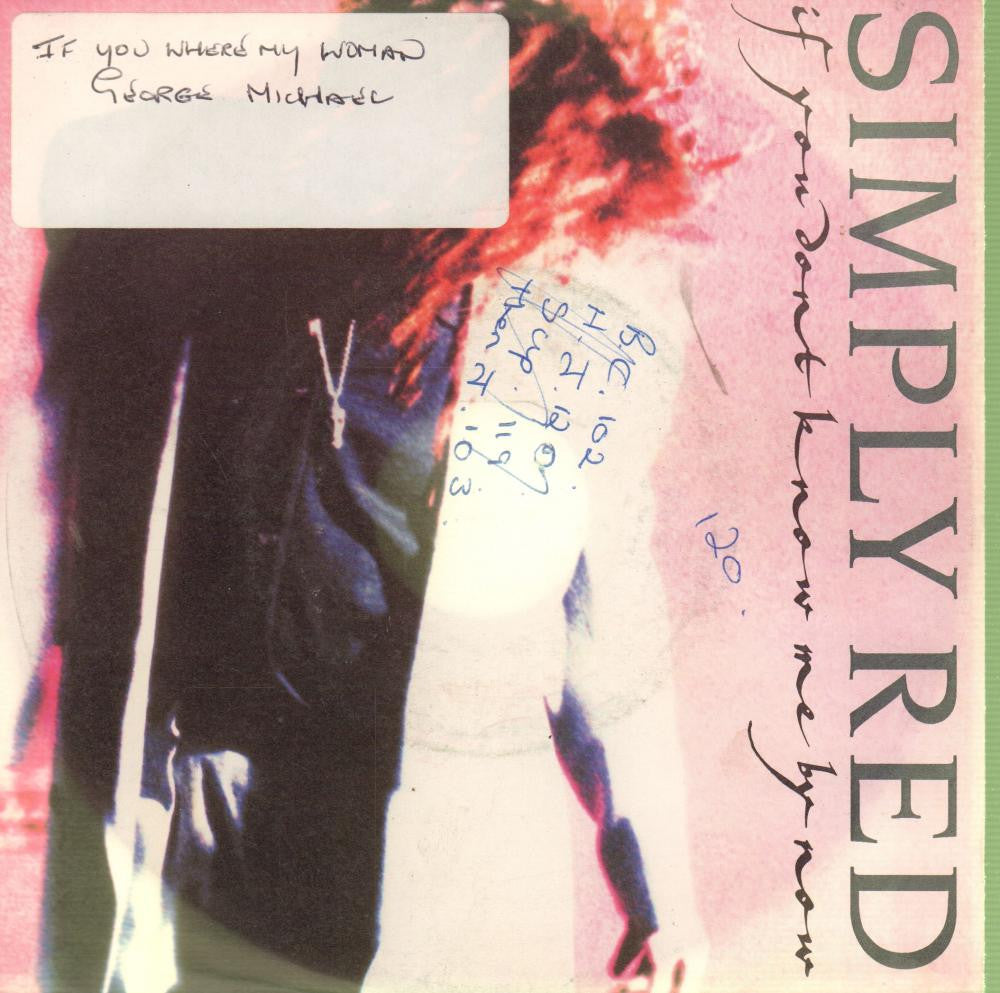 IF YOU WHERE MY WOMAN
GEORGE MICHAEL
SIMPLY RED
if you don't know me by now
102
120
119
103
120.